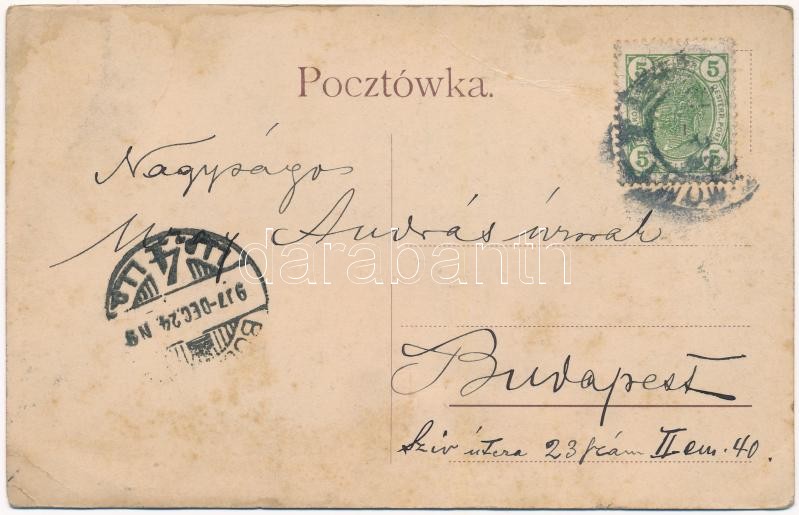 Pocztówka.
5 5
5 5
Nagyságos
András úrnak
Budapest
Sziv utcza 23 szám II em. 40.
917-DEC.24. N9
4
darabanth